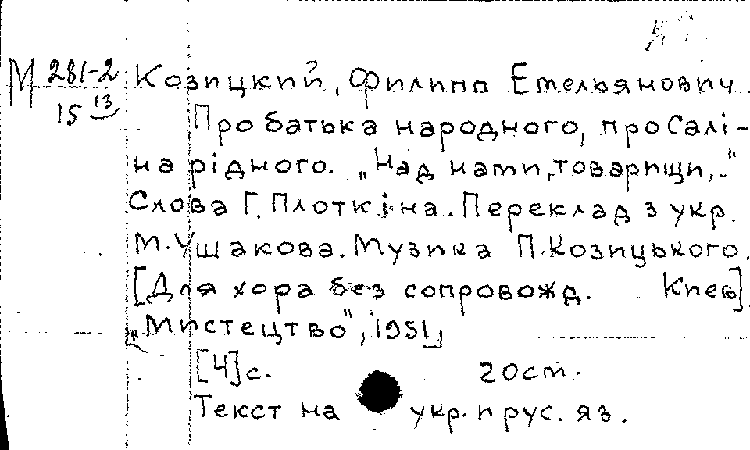 М 281-2 Козицкий, Филипп Емельянович.
15 13
Про батька народного, про Салі-
на рідного. „Над нами, товарищи,.."
Слова Г. Плоткіна. Переклад з укр.
М. Ушакова. Музика П. Козицького.
[Для хора без сопровожд. Киев]
„Мистецтво", 1951,
[4]с. 20 ст.
Текст на укр. и рус. яз.